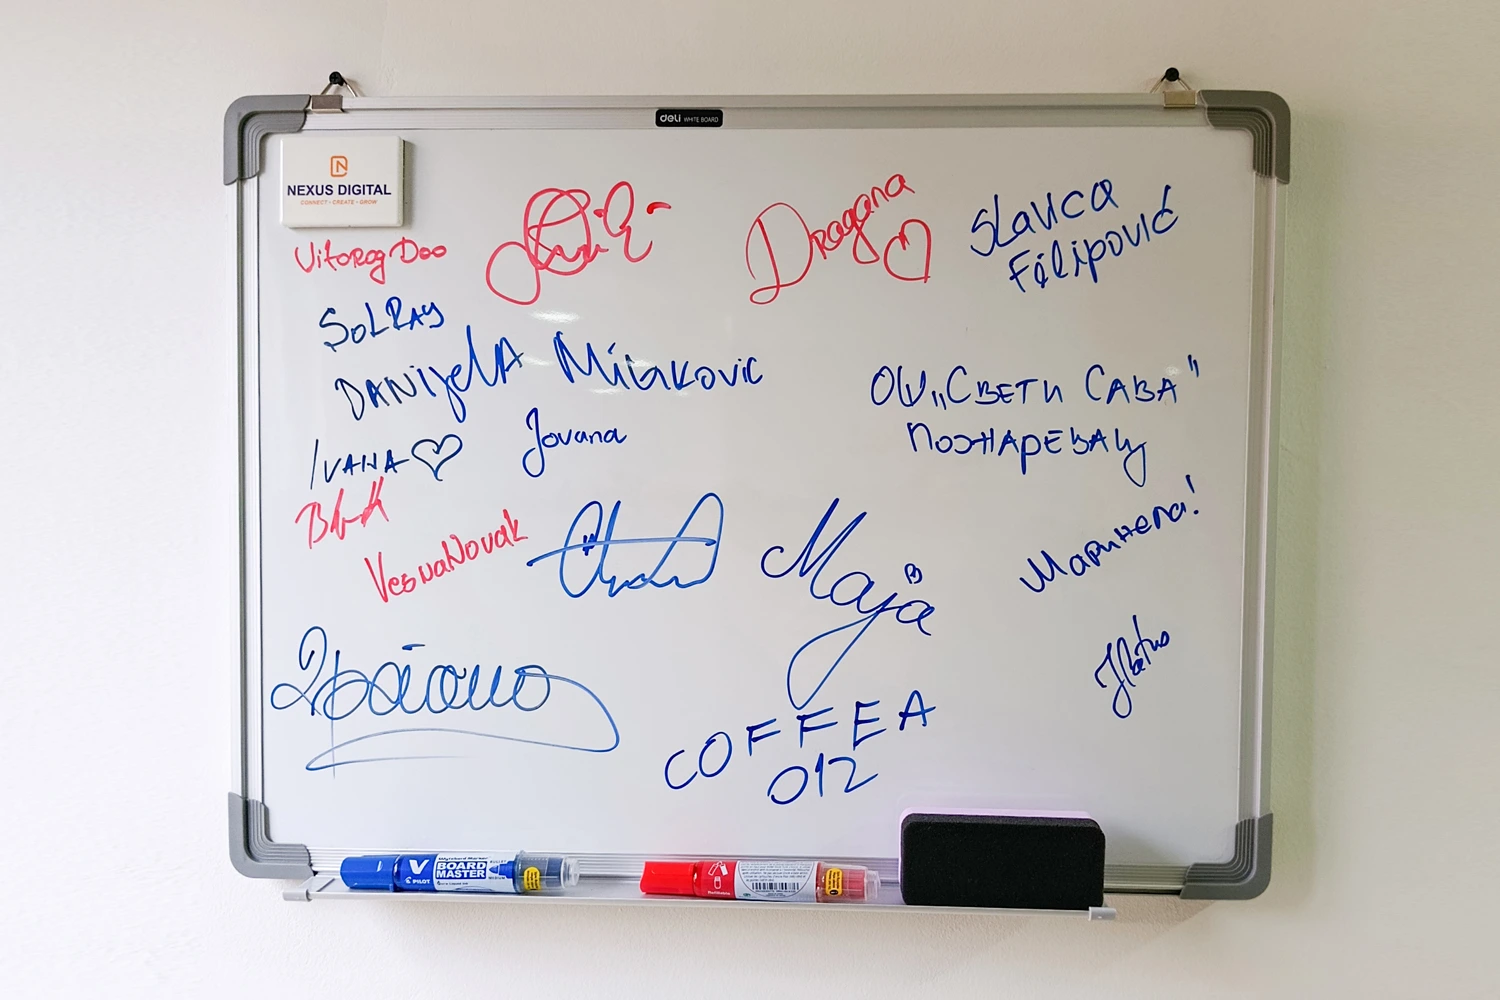 deli WHITE BOARD
NEXUS DIGITAL
CONNECT • CREATE • GROW
Vitorog Doo
Dragana
Slavica
Filipović
SOLRAY
DANIJELA Milaković
ОШ „СВЕТИ САВА"
ПОЖАРЕВАЦ
IVANA
Jovana
Vesna Novak
Maja
Маринела!
COFFEA
012
V BOARD MASTER
PILOT